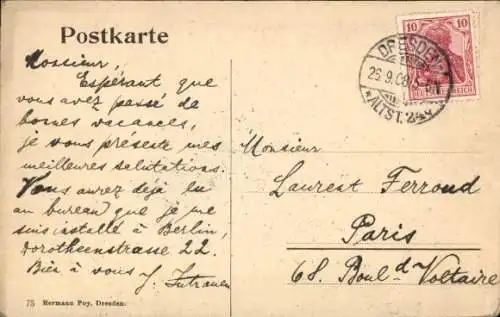 Postkarte
Monsieur,
Espérant que
vous avez passé de
bonnes vacances,
je vous présente mes
meilleures salutations.
Vous aurez déjà lu
au bureau que je me
suis installé à Berlin,
Dorotheenstrasse 22.
Bien à vous J.
75 Hermann Poy, Dresden.
10 10
DRESDEN
ALTST. 24
REICH
Monsieur
Laurent Ferroud
Paris
68. Boul.d Voltaire